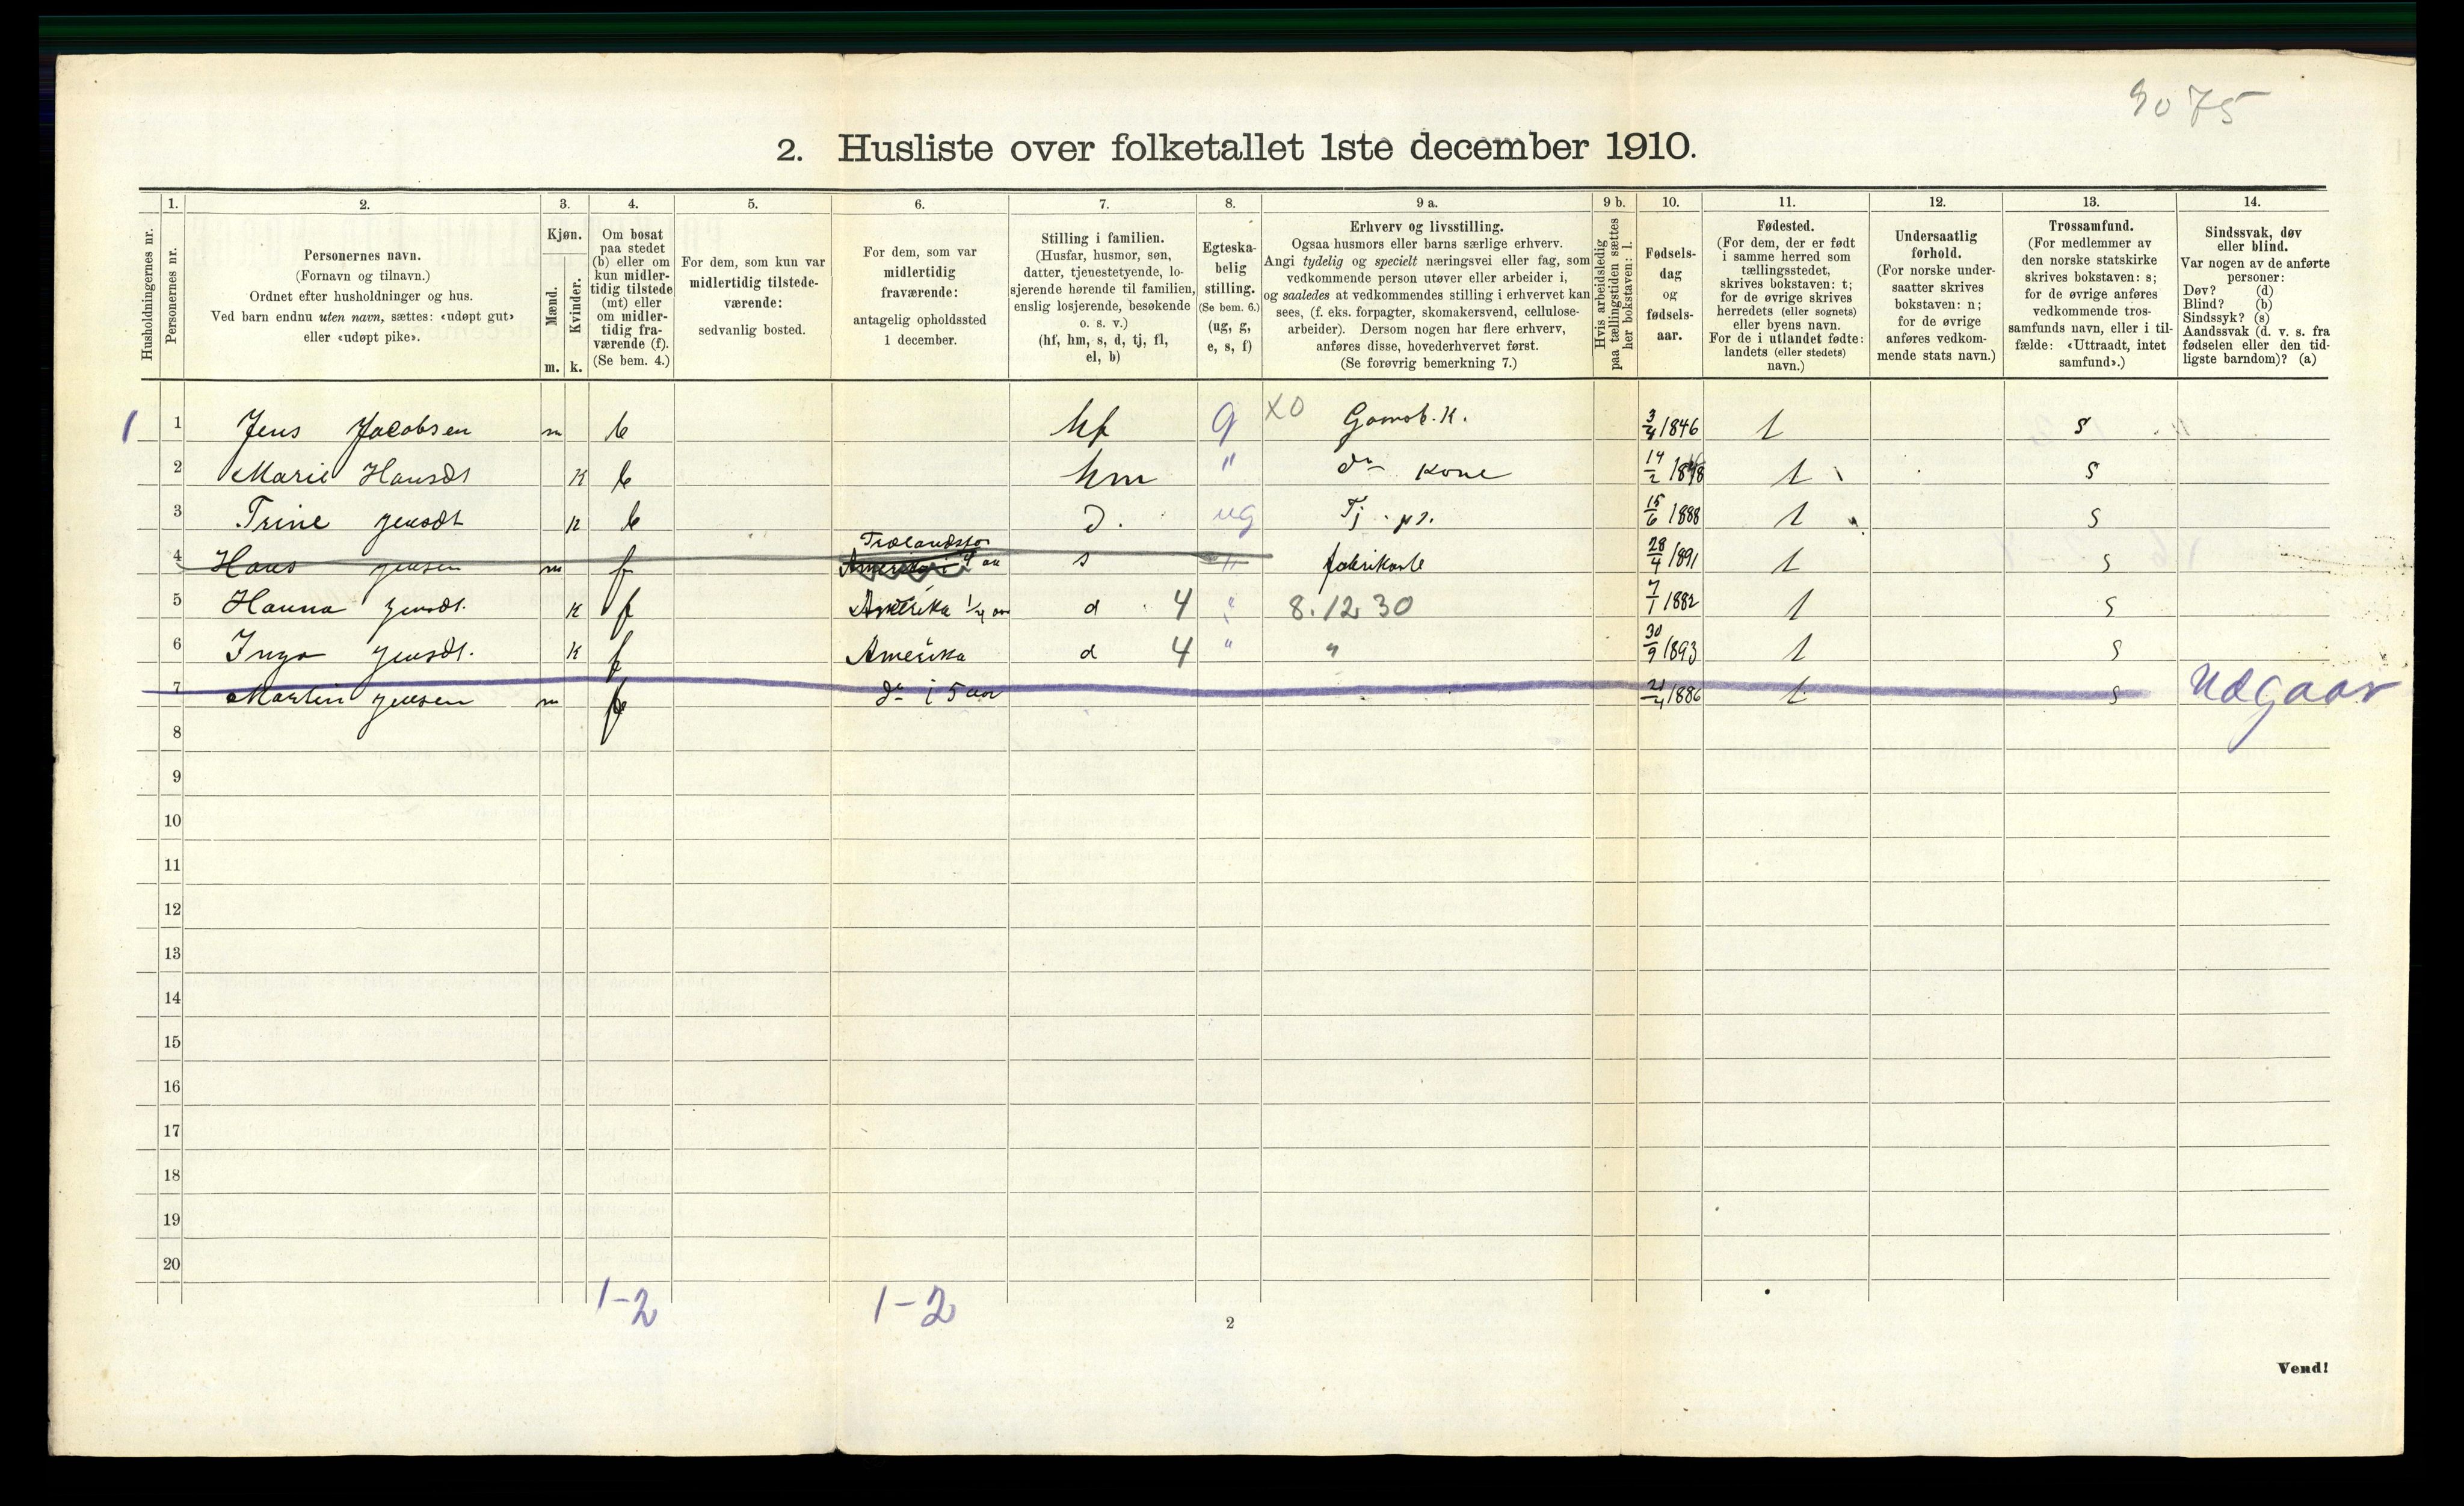 9075
2. Husliste over folketallet 1ste december 1910.
1. 2. 3. 4. 5. 6. 7. 8. 9 a. 9 b. 10. 11. 12. 13. 14.
Husholdningernes nr.
Personernes nr.
Personernes navn.
(Fornavn og tilnavn.)
Ordnet efter husholdninger og hus.
Ved barn endnu uten navn, sættes: «udøpt gut»
eller «udøpt pike».
Kjøn.
Mænd.
Kvinder.
m. k.
Om bosat
paa stedet
(b) eller om
kun midler-
tidig tilstede
(mt) eller
om midler-
tidig fra-
værende (f).
(Se bem. 4.)
For dem, som kun var
midlertidig tilstede-
værende:
sedvanlig bosted.
For dem, som var
midlertidig
fraværende:
antagelig opholdssted
1 december.
Stilling i familien.
(Husfar, husmor, søn,
datter, tjenestetyende, lo-
sjerende hørende til familien,
enslig losjerende, besøkende
o. s. v.)
(hf, hm, s, d, tj, fl,
el, b)
Egteska-
belig
stilling.
(Se bem. 6.)
(ug, g,
e, s, f)
Erhverv og livsstilling.
Ogsaa husmors eller barns særlige erhverv.
Angi tydelig og specielt næringsvei eller fag, som
vedkommende person utøver eller arbeider i,
og saaledes at vedkommendes stilling i erhvervet kan
sees, (f. eks. forpagter, skomakersvend, cellulose-
arbeider). Dersom nogen har flere erhverv,
anføres disse, hovederhvervet først.
(Se forøvrig bemerkning 7.)
Hvis arbeidsledig
paa tællingstiden sættes
her bokstaven: l.
Fødsels-
dag
og
fødsels-
aar.
Fødested.
(For dem, der er født
i samme herred som
tællingsstedet,
skrives bokstaven: t;
for de øvrige skrives
herredets (eller sognets)
eller byens navn.
For de i utlandet fødte:
landets (eller stedets)
navn.)
Undersaatlig
forhold.
(For norske under-
saatter skrives
bokstaven: n;
for de øvrige
anføres vedkom-
mende stats navn.)
Trossamfund.
(For medlemmer av
den norske statskirke
skrives bokstaven: s;
for de øvrige anføres
vedkommende tros-
samfunds navn, eller i til-
fælde: «Uttraadt, intet
samfund».)
Sindssvak, døv
eller blind.
Var nogen av de anførte
personer:
Døv? (d)
Blind? (b)
Sindssyk? (s)
Aandssvak (d. v. s. fra
fødselen eller den tid-
ligste barndom)? (a)
1 1 Jens Jacobsen m b hf g X0 3/4 1846 t s
2 Marie Hansdt k b hm " do kone 14/2 t s
3 Trine Jensdt k b d. ug Tj. 15/6 1888 t s
4 Hans Jensen m f s " 28/4 1891 t s
5 Hanna Jensdt. k f Amerika 1/4 aar d 4 " 8.12 30 7/1 1882 t s
6 Inga Jensdt. k f Amerika d 4 " " 30/9 1893 t s
7 Martin Jensen m f do i 5 aar 21/4 1886 t s Udgaar
8
9
10
11
12
13
14
15
16
17
18
19
20
1-2 1-2
2
Vend!